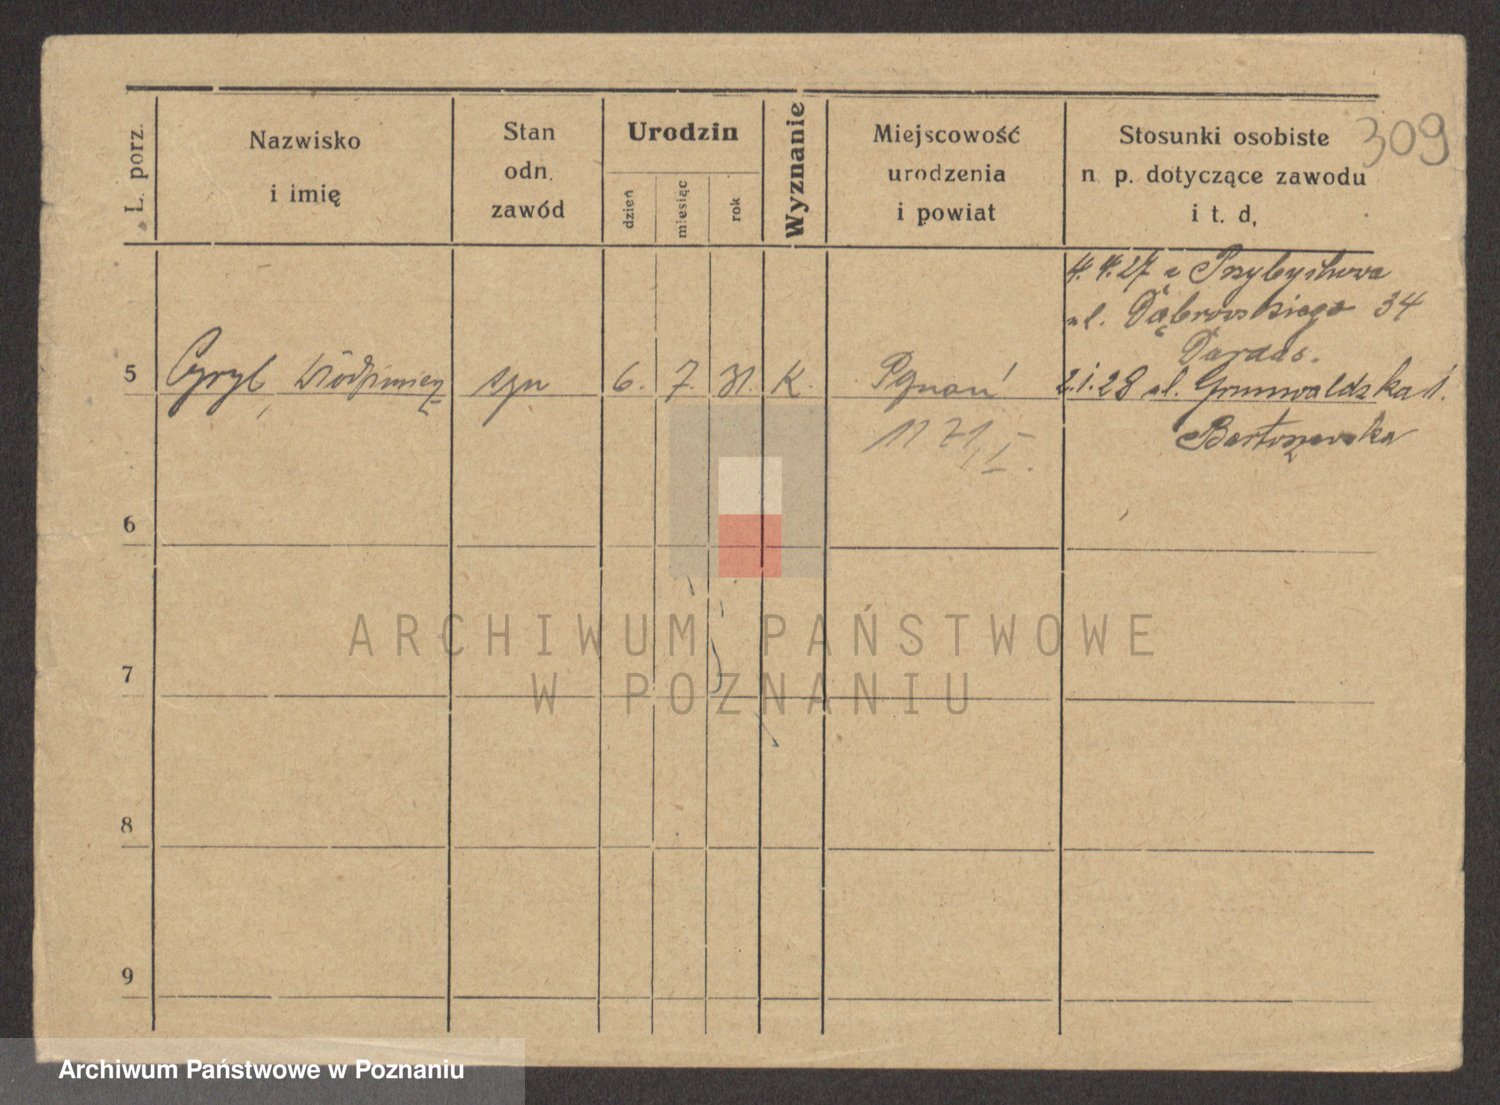 309
L. porz.
Nazwisko
i imię
Stan
odn.
zawód
Urodzin
dzień
miesiąc
rok
Wyznanie
Miejscowość
urodzenia
i powiat
Stosunki osobiste
n p. dotyczące zawodu
i t. d,
4.4.27 z Przybyszewa
ul. Dąbrowskiego 34
Dardas.
5 Cyryl, Włodzimierz syn 6. 7. 31. K. Poznań 2.1.28 ul. Grunwaldzka 1.
1171, I.
Bartoszewska
6
7
8
9
ARCHIWUM PAŃSTWOWE
W POZNANIU
Archiwum Państwowe w Poznaniu